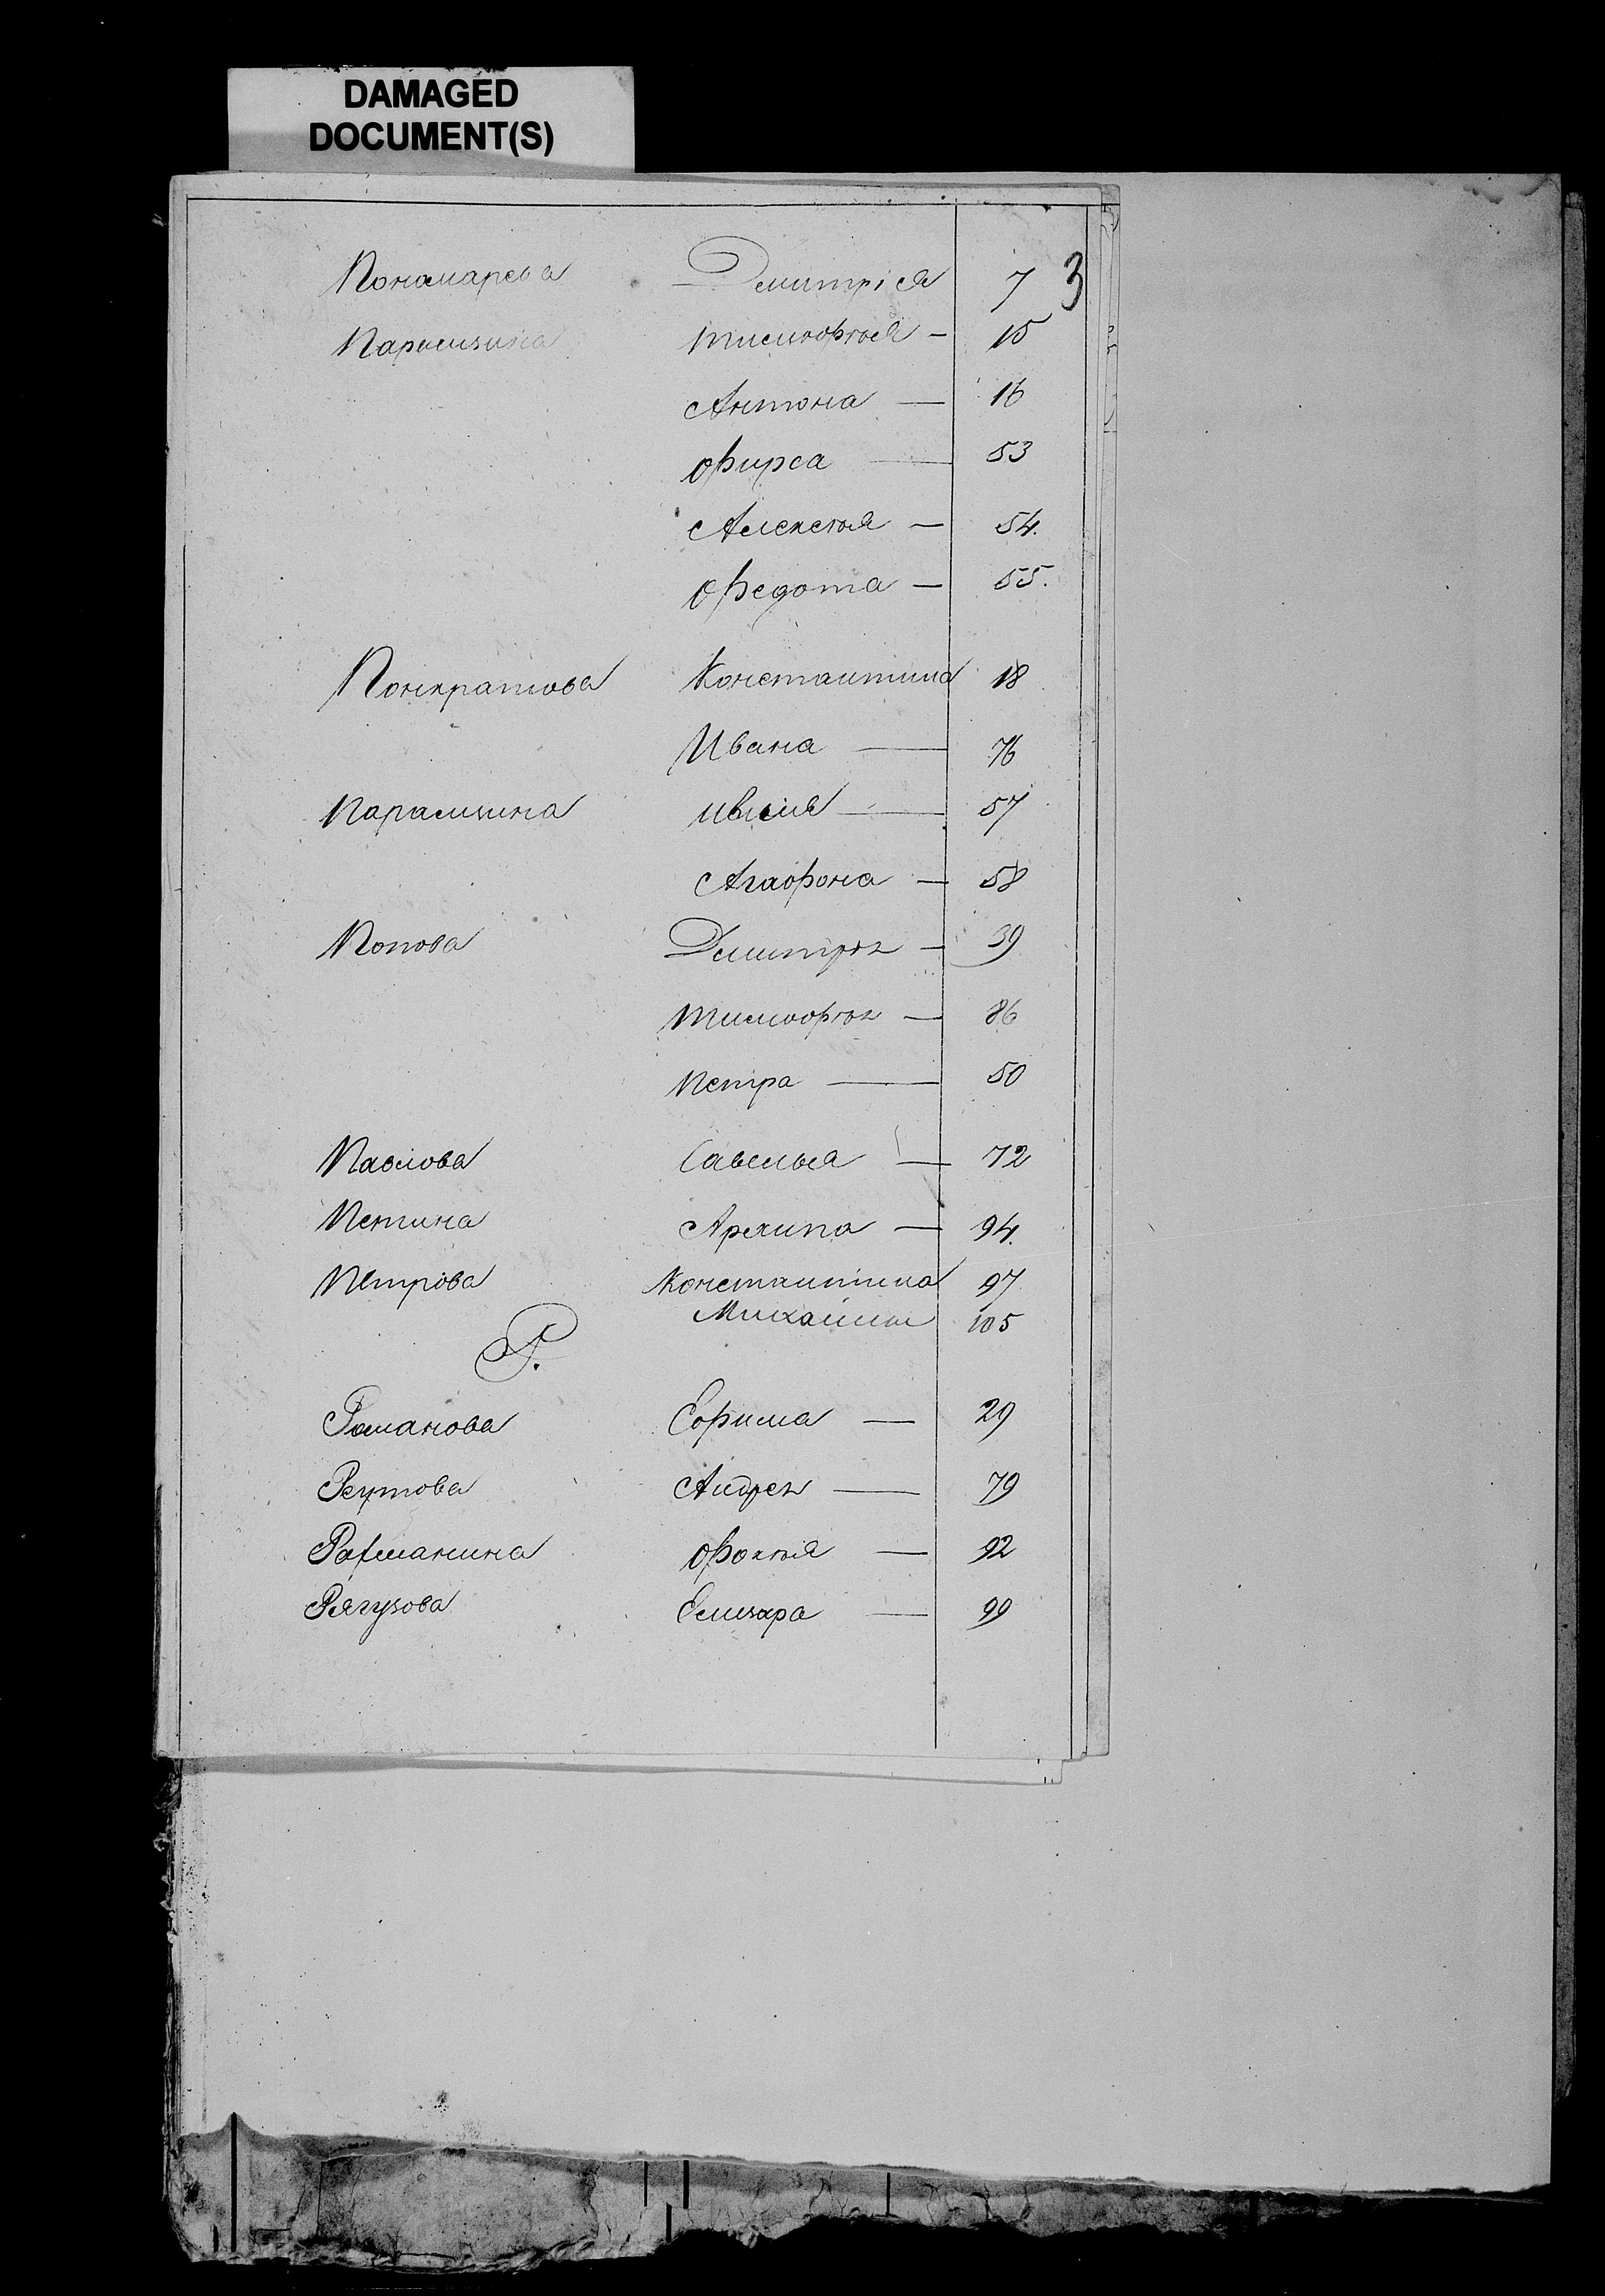 DAMAGED
DOCUMENT(S)
3
Пономарева Дмитрія 7
Парамзина Тимофѣя — 15
Антона — 16
Фирса — 53
Алексѣя — 54.
Федота — 55.
Понкратова Константина 18
Ивана — 76
Парамзина — 57
Агафона — 58
Попова Дмитрея — 39
Тимофѣя — 86
Петра — 50
Павлова Савелья — 72
Петина Архипа — 94.
Петрова Константина 97
Михаила 105
Р.
Романова Ефима — 29
Реутова Андрея — 79
Рахманина Фокѣя — 92
Рягузова Елизара — 99